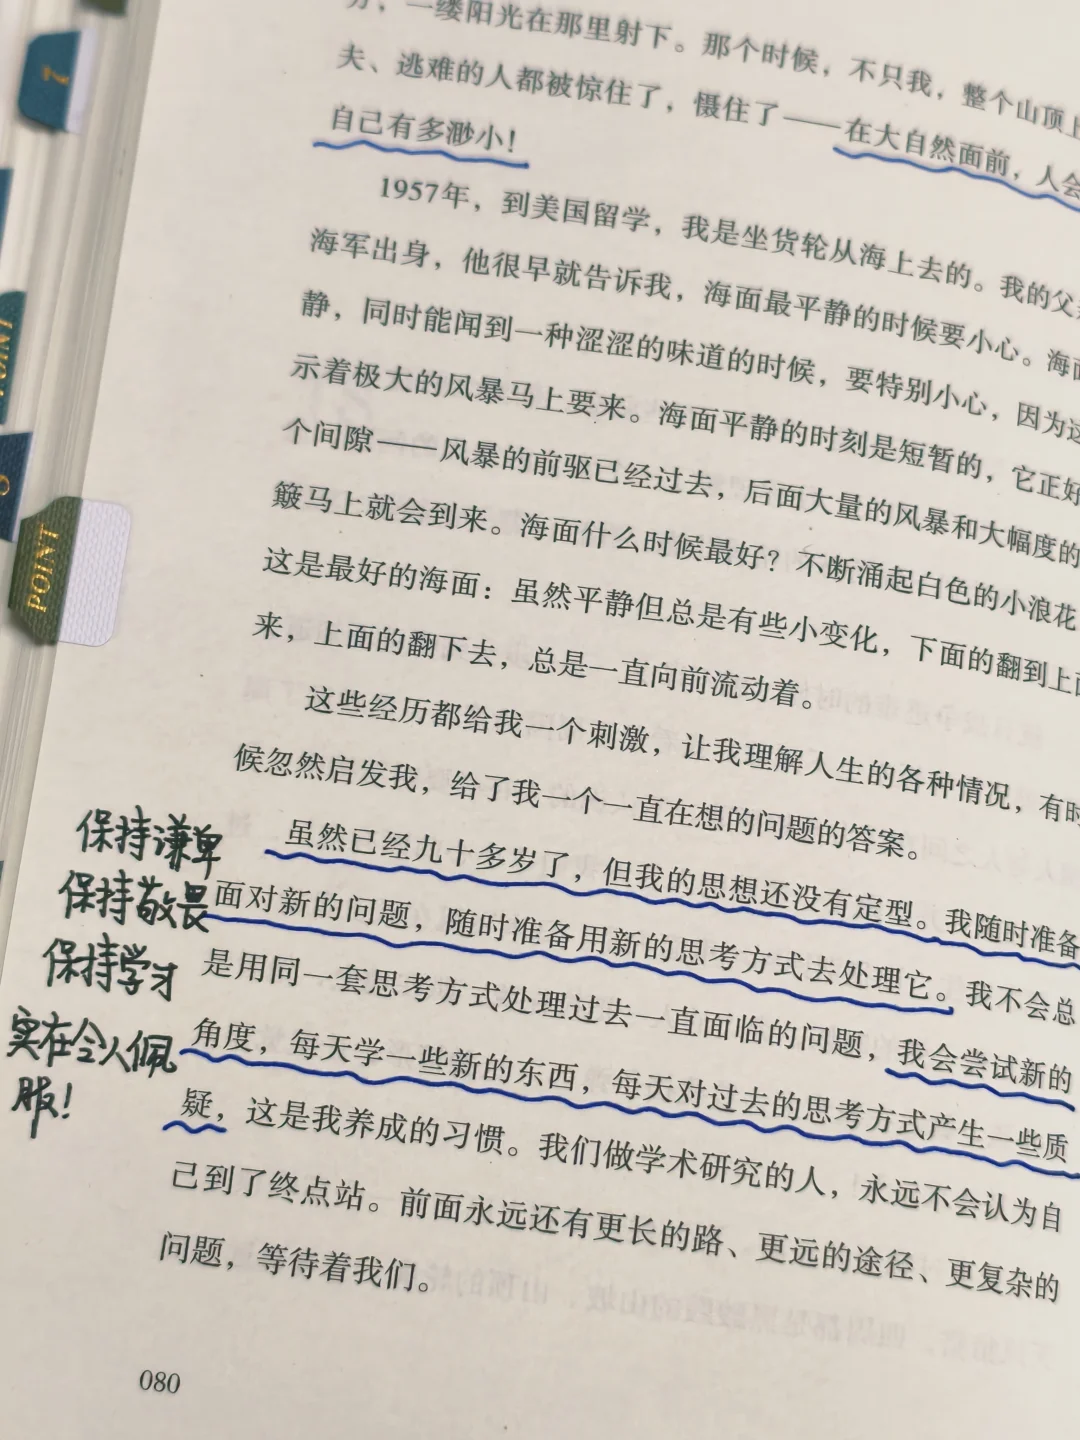 一缕阳光在那里射下。那个时候，不只我，整个山顶上
夫、逃难的人都被惊住了，慑住了——在大自然面前，人会
自己有多渺小！
1957年，到美国留学，我是坐货轮从海上去的。我的父
海军出身，他很早就告诉我，海面最平静的时候要小心。海面
静，同时能闻到一种涩涩的味道的时候，要特别小心，因为这
示着极大的风暴马上要来。海面平静的时刻是短暂的，它正好
个间隙——风暴的前驱已经过去，后面大量的风暴和大幅度的
簸马上就会到来。海面什么时候最好？不断涌起白色的小浪花
这是最好的海面：虽然平静但总是有些小变化，下面的翻到上面
来，上面的翻下去，总是一直向前流动着。
这些经历都给我一个刺激，让我理解人生的各种情况，有时
候忽然启发我，给了我一个一直在想的问题的答案。
虽然已经九十多岁了，但我的思想还没有定型。我随时准备
面对新的问题，随时准备用新的思考方式去处理它。我不会总
是用同一套思考方式处理过去一直面临的问题，我会尝试新的
角度，每天学一些新的东西，每天对过去的思考方式产生一些质
疑，这是我养成的习惯。我们做学术研究的人，永远不会认为自
己到了终点站。前面永远还有更长的路、更远的途径、更复杂的
问题，等待着我们。
保持谦卑
保持敬畏
保持学习
实在令人佩
服！
080
7
POINT
POINT